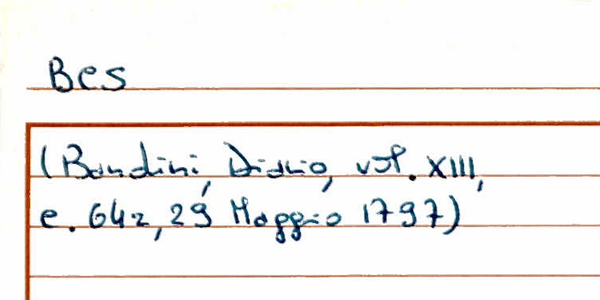 Bes
(Bandini, Diario, vol. XIII,
c. 642, 29 Maggio 1797)